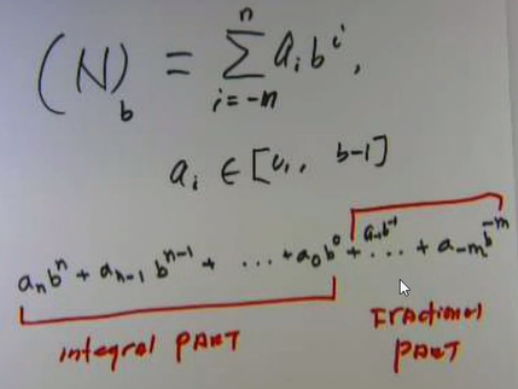 (N)_b = \sum_{i=-n}^{n} a_i b^i,
a_i ∈ [0,, b-1]
a_n b^n + a_{n-1} b^{n-1} + ... + a_0 b^0 + a_{-1}b^{-1} ... + a_{-m} b^{-m}
integral PART
Fractional
PART